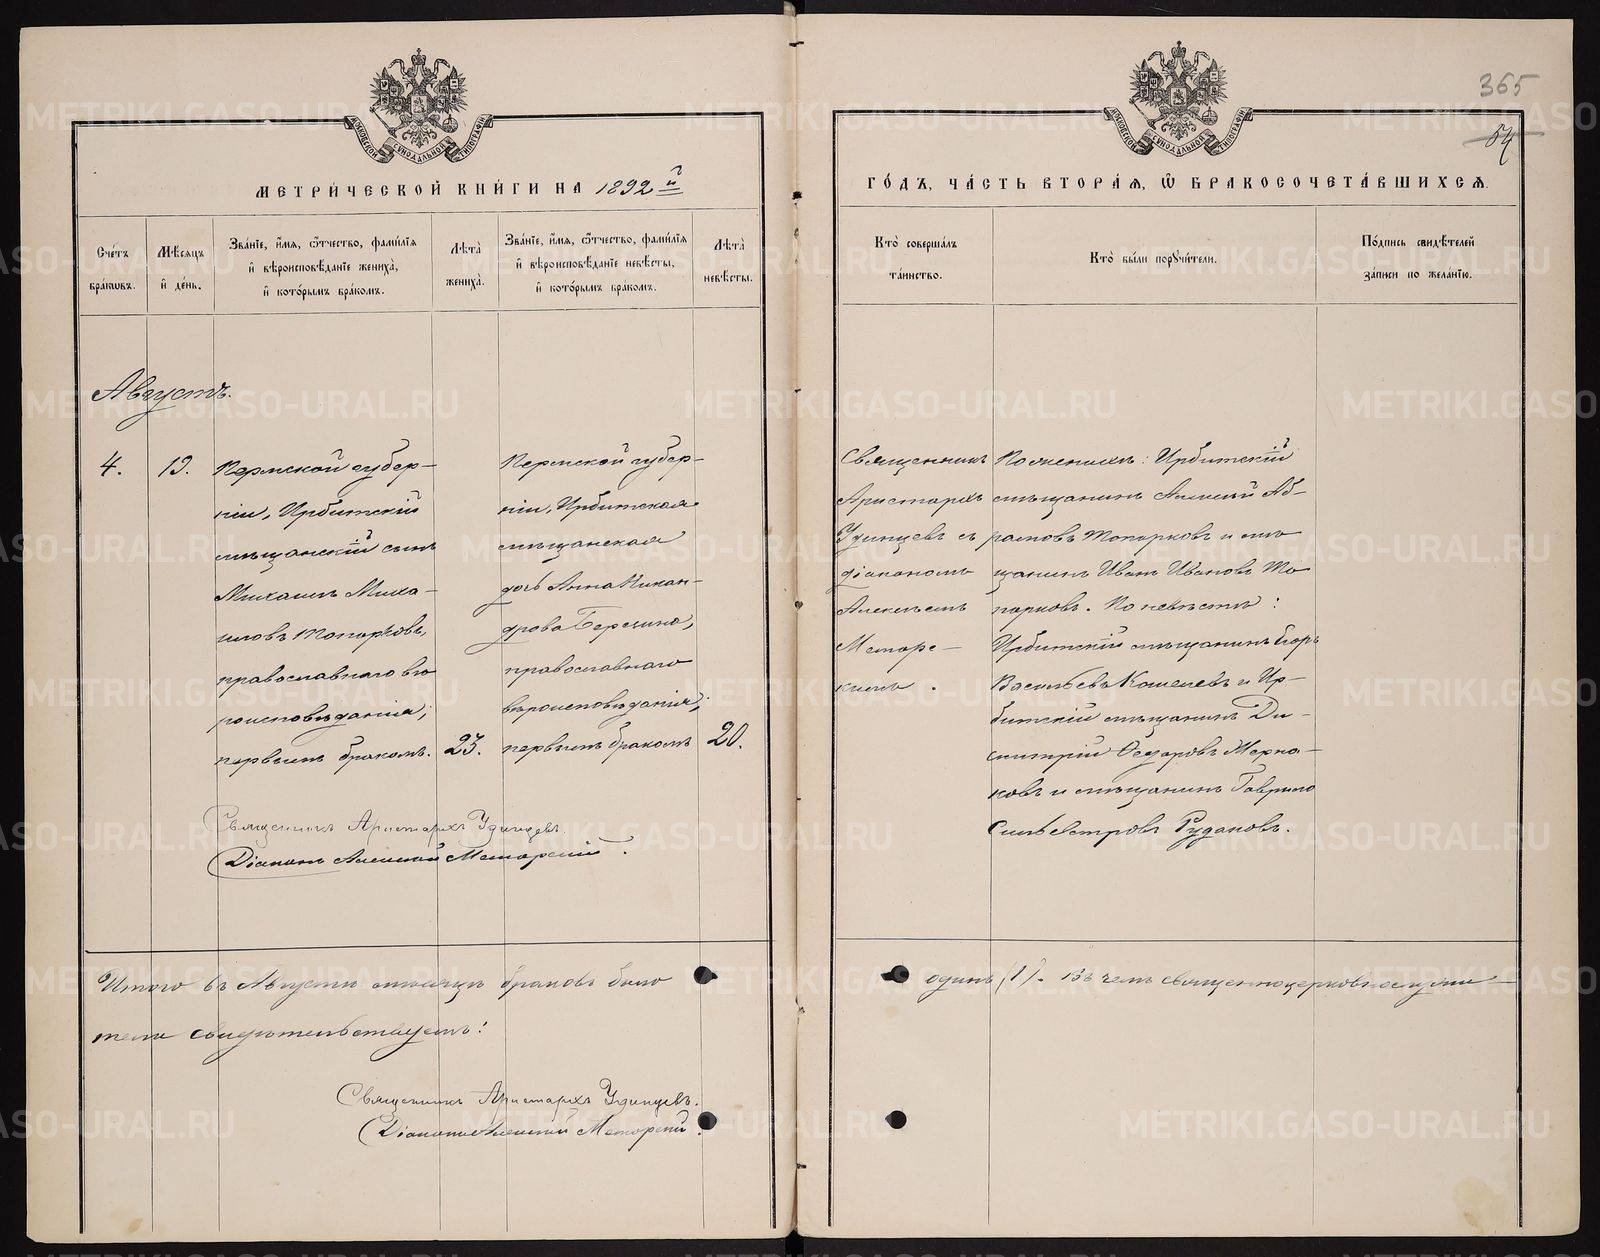 365
54
МОСКОВСКОЙ СѴНОДАЛЬНОЙ ТИПОГРАФІИ
МОСКОВСКОЙ СѴНОДАЛЬНОЙ ТИПОГРАФІИ
МЕТРИЧЕСКОЙ КНИГИ НА 1892й
ГОДЪ, ЧАСТЬ ВТОРАЯ, Ѿ БРАКОСОЧЕТАВШИХСЯ.
Счетъ браковъ.
Мѣсяцъ и день.
Званіе, имя, отчество, фамилія
и вѣроисповѣданіе жениха,
и которымъ бракомъ.
Лѣта жениха.
Званіе, имя, отчество, фамилія
и вѣроисповѣданіе невѣсты,
и которымъ бракомъ.
Лѣта невѣсты.
Кто совершалъ
таинство.
Кто были поручители.
Подпись свидѣтелей
записи по желанію.
Августъ.
4.
19.
Пермской губер-
ніи, Ирбитскій
мѣщанскій сынъ
Михаилъ Миха-
иловъ Топорковъ,
православнаго вѣ
роисповѣданія;
первымъ бракомъ.
23.
Пермской губер-
ніи, Ирбитская
мѣщанская
дочь Анна Никан-
дрова Березина,
православнаго
вѣроисповѣданія;
первымъ бракомъ
20.
Священникъ Аристархъ Удинцевъ.
Діаконъ Алексѣй Меморскій.
Священникъ
Аристархъ
Удинцевъ съ
діакономъ
Алексѣемъ
Меморс-
кимъ.
По женихѣ: Ирбитскій
мѣщанинъ Алексѣй Аб-
рамовъ Топорковъ и мѣ
щанинъ Иванъ Ивановъ То
порковъ. По невѣстѣ:
Ирбитскій мѣщанинъ Егоръ
Васильевъ Кошелевъ и Ир-
битскій мѣщанинъ Ди-
митрій Ѳедоровъ
и мѣщанинъ Гаврило
Сильвестровъ Рудаковъ.
Итого въ Августѣ мѣсяцѣ браковъ было
одинъ (1). Въ чемъ священноцерковнослужи-
тели свидѣтельствуемъ:
Священникъ Аристархъ Удинцевъ.
Діаконъ Алексѣй Меморскій.
METRIKI.GASO-URAL.RU